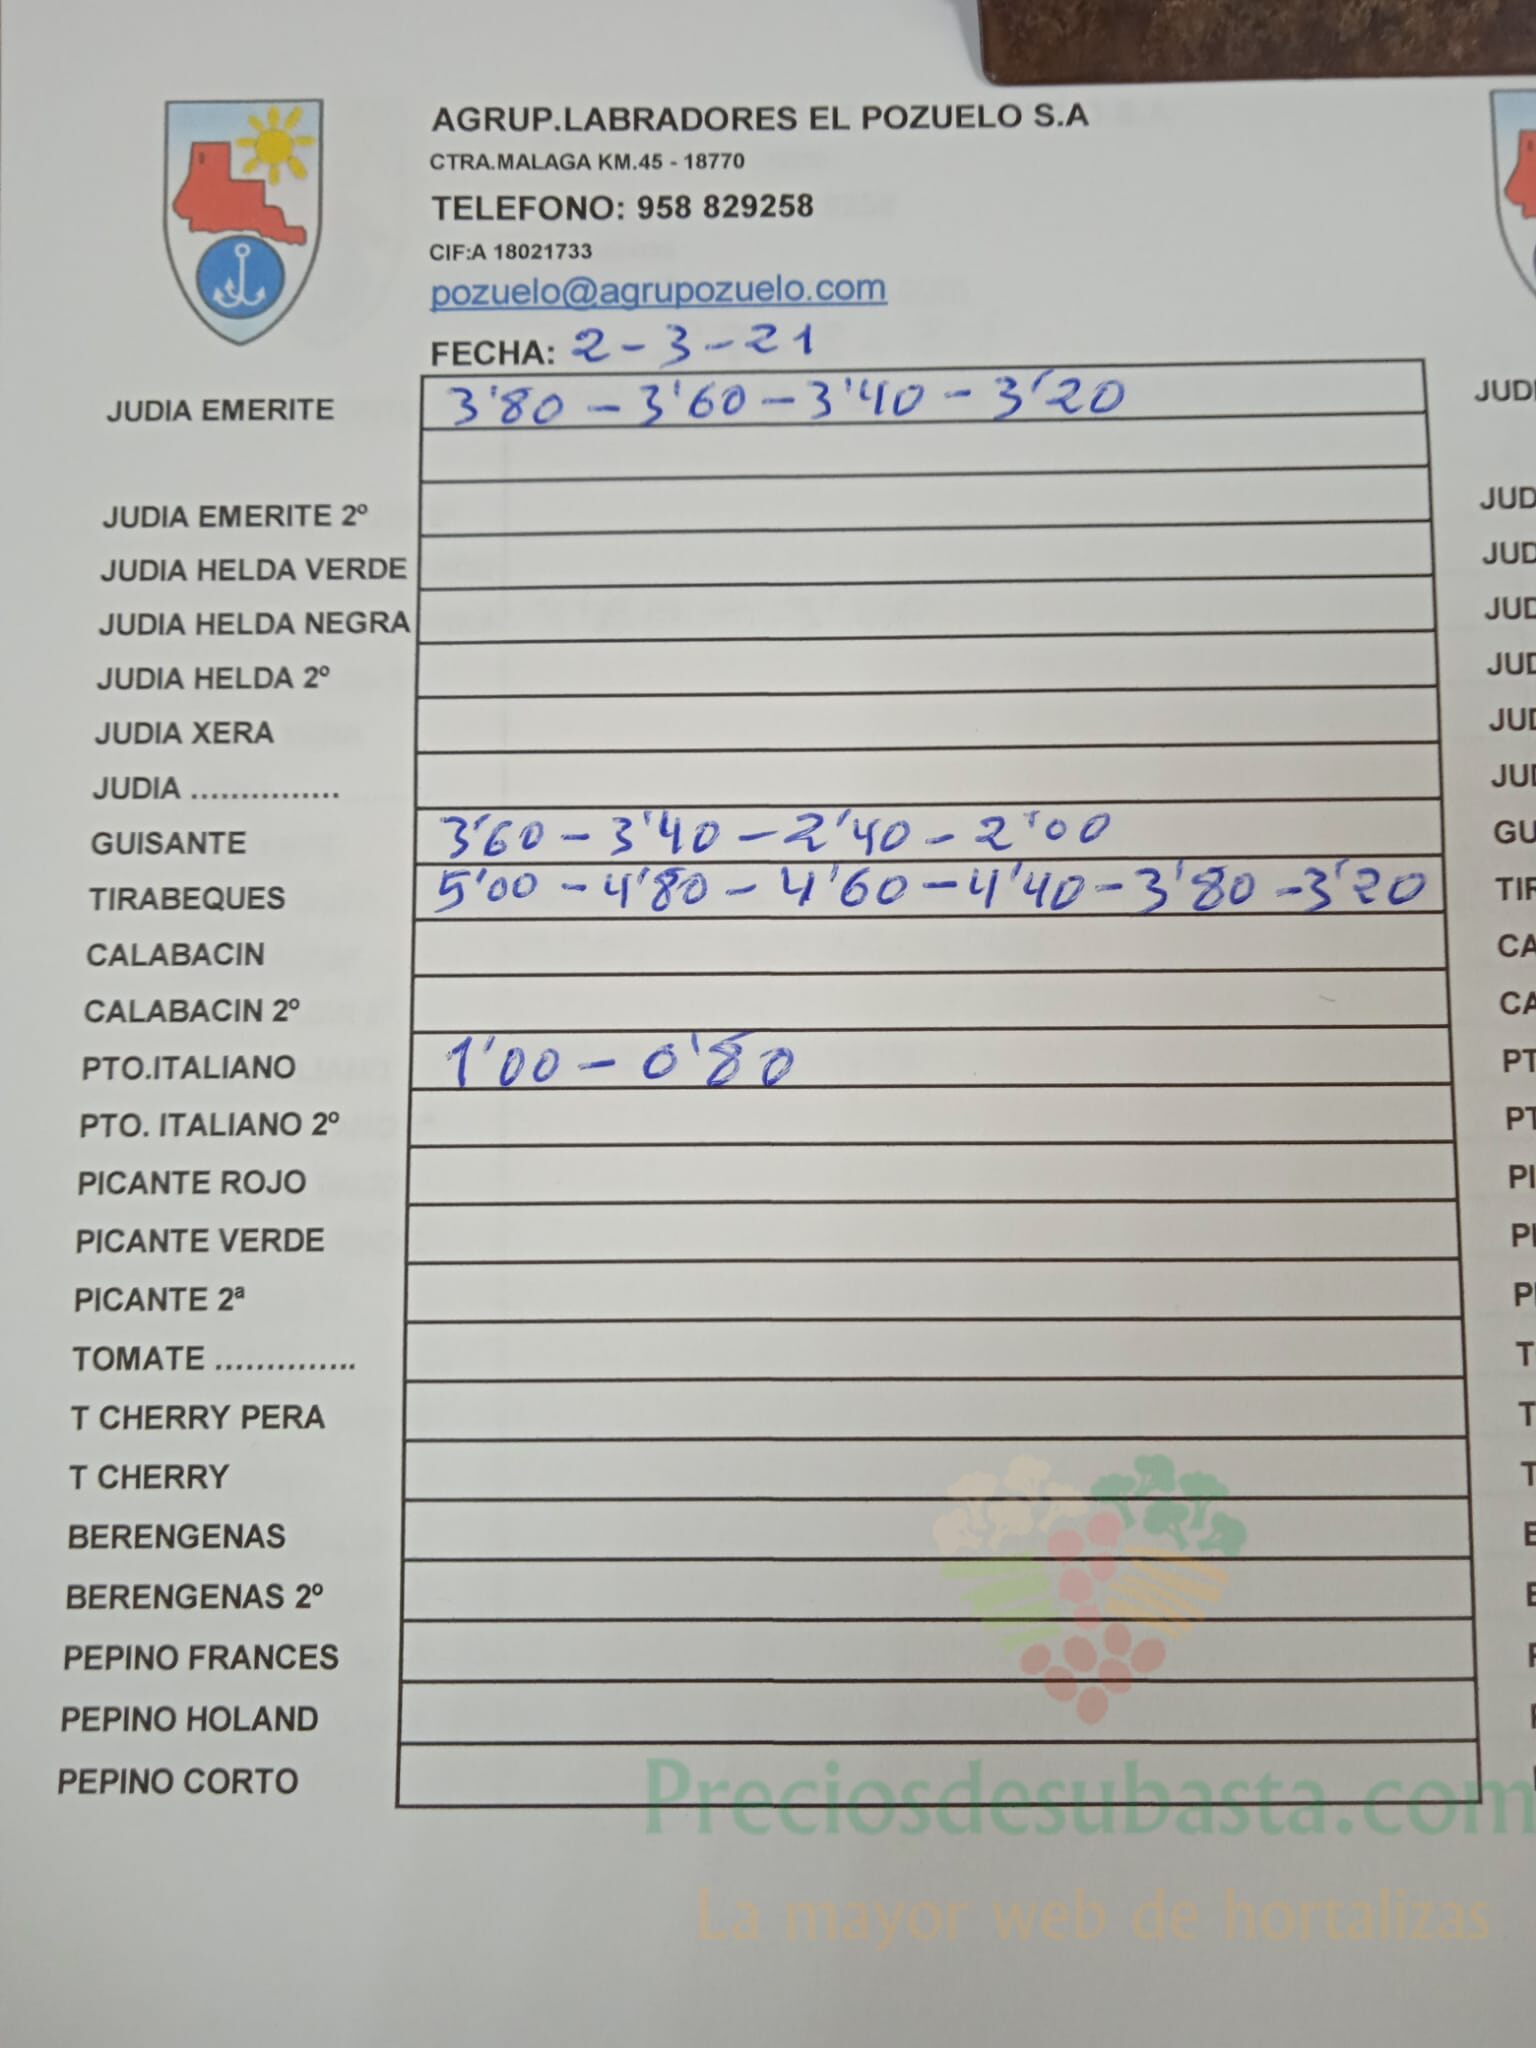 AGRUP.LABRADORES EL POZUELO S.A
CTRA.MALAGA KM.45 - 18770
TELEFONO: 958 829258
CIF:A 18021733
pozuelo@agrupozuelo.com
FECHA: 2-3-21
JUDIA EMERITE 3'80 - 3'60 - 3'40 - 3'20 JUD
JUDIA EMERITE 2º JUD
JUDIA HELDA VERDE JUD
JUDIA HELDA NEGRA JUD
JUDIA HELDA 2º JUD
JUDIA XERA JUD
JUDIA ............... JUD
GUISANTE 3'60 - 3'40 - 2'40 - 2'00 GU
TIRABEQUES 5'00 - 4'80 - 4'60 - 4'40 - 3'80 - 3'20 TIR
CALABACIN CA
CALABACIN 2º CA
PTO.ITALIANO 1'00 - 0'80 PT
PTO. ITALIANO 2º PT
PICANTE ROJO PI
PICANTE VERDE PI
PICANTE 2ª PI
TOMATE .............. T
T CHERRY PERA T
T CHERRY T
BERENGENAS
BERENGENAS 2º
PEPINO FRANCES
PEPINO HOLAND
PEPINO CORTO
Preciosdesubasta.com
La mayor web de hortalizas